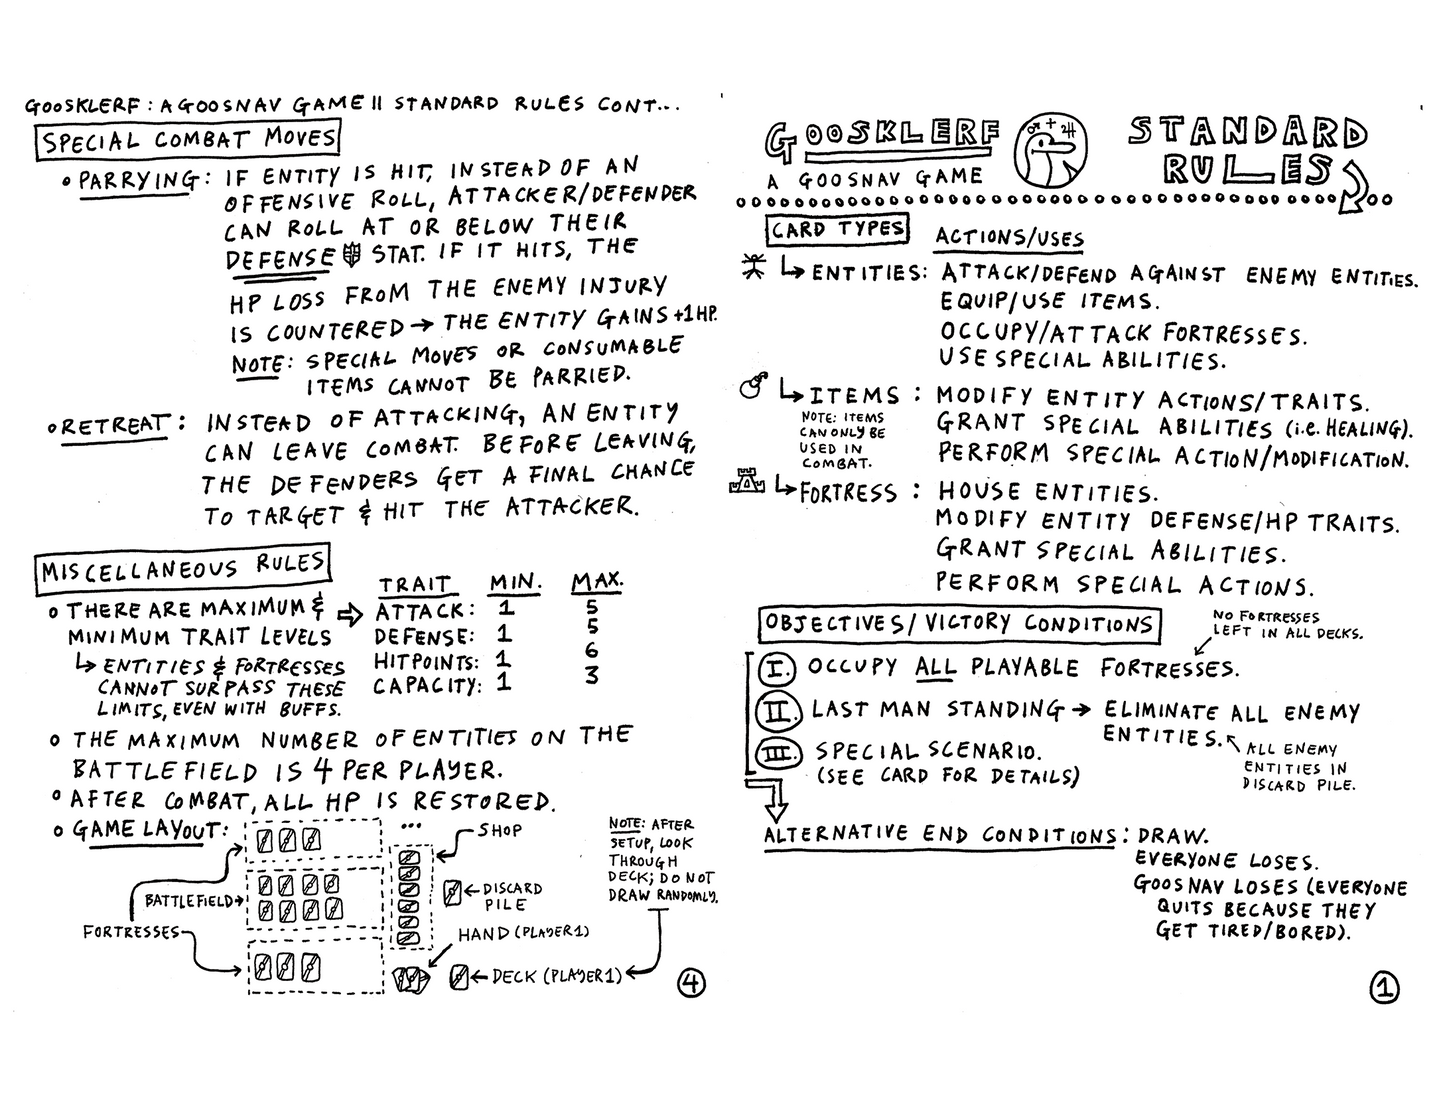 GOOSKLERF: A GOOSNAV GAME || STANDARD RULES CONT...
SPECIAL COMBAT MOVES
• PARRYING: IF ENTITY IS HIT, INSTEAD OF AN
OFFENSIVE ROLL, ATTACKER/DEFENDER
CAN ROLL AT OR BELOW THEIR
DEFENSE STAT. IF IT HITS, THE
HP LOSS FROM THE ENEMY INJURY
IS COUNTERED → THE ENTITY GAINS +1 HP.
NOTE: SPECIAL MOVES OR CONSUMABLE
ITEMS CANNOT BE PARRIED.
• RETREAT: INSTEAD OF ATTACKING, AN ENTITY
CAN LEAVE COMBAT. BEFORE LEAVING,
THE DEFENDERS GET A FINAL CHANCE
TO TARGET & HIT THE ATTACKER.
MISCELLANEOUS RULES
• THERE ARE MAXIMUM &
MINIMUM TRAIT LEVELS
↳ ENTITIES & FORTRESSES
CANNOT SURPASS THESE
LIMITS, EVEN WITH BUFFS.
⇨ TRAIT MIN. MAX.
ATTACK: 1 5
DEFENSE: 1 5
HITPOINTS: 1 6
CAPACITY: 1 3
• THE MAXIMUM NUMBER OF ENTITIES ON THE
BATTLEFIELD IS 4 PER PLAYER.
• AFTER COMBAT, ALL HP IS RESTORED.
• GAME LAYOUT:
...
SHOP
BATTLEFIELD →
FORTRESSES
← DISCARD
PILE
HAND (PLAYER 1)
← DECK (PLAYER 1)
NOTE: AFTER
SETUP, LOOK
THROUGH
DECK; DO NOT
DRAW RANDOMLY.
4
GOOSKLERF
A GOOSNAV GAME
♂ + ♃
STANDARD
RULES
CARD TYPES ACTIONS/USES
↳ ENTITIES: ATTACK/DEFEND AGAINST ENEMY ENTITIES.
EQUIP/USE ITEMS.
OCCUPY/ATTACK FORTRESSES.
USE SPECIAL ABILITIES.
↳ ITEMS: MODIFY ENTITY ACTIONS/TRAITS.
GRANT SPECIAL ABILITIES (i.e. HEALING).
PERFORM SPECIAL ACTION/MODIFICATION.
NOTE: ITEMS
CAN ONLY BE
USED IN
COMBAT.
↳ FORTRESS: HOUSE ENTITIES.
MODIFY ENTITY DEFENSE/HP TRAITS.
GRANT SPECIAL ABILITIES.
PERFORM SPECIAL ACTIONS.
OBJECTIVES/VICTORY CONDITIONS
NO FORTRESSES
LEFT IN ALL DECKS.
I. OCCUPY ALL PLAYABLE FORTRESSES.
II. LAST MAN STANDING → ELIMINATE ALL ENEMY
ENTITIES.
ALL ENEMY
ENTITIES IN
DISCARD PILE.
III. SPECIAL SCENARIO.
(SEE CARD FOR DETAILS)
ALTERNATIVE END CONDITIONS: DRAW.
EVERYONE LOSES.
GOOSNAV LOSES (EVERYONE
QUITS BECAUSE THEY
GET TIRED/BORED).
1